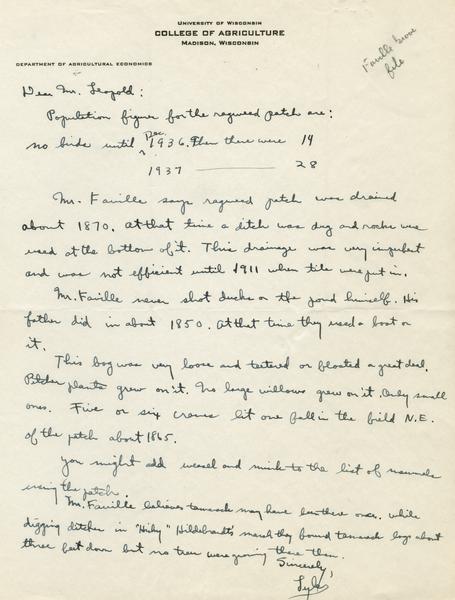 UNIVERSITY OF WISCONSIN
COLLEGE OF AGRICULTURE
MADISON, WISCONSIN
Faville Grove
file
DEPARTMENT OF AGRICULTURAL ECONOMICS
Dear Mr. Leopold:
Population figures for the ragweed patch are:
no birds until Dec. 1936. Then there were 14
1937 — 28
Mr. Faville says ragweed patch was drained
about 1870. At that time a ditch was dug and rocks were
used at the bottom of it. This drainage was very imperfect
and was not efficient until 1911 when tile were put in.
Mr. Faville never shot ducks on the pond himself. His
father did in about 1850. At that time they used a boat on
it.
This bog was very loose and teetered or floated a great deal.
Pitcher plants grew on it. No large willows grew on it. Only small
ones. Five or six cranes lit one fall in the field N.E.
of the patch about 1865.
You might add weasel and mink to the list of mammals
using the patch.
Mr. Faville believes tamarack may have been there once. While
digging ditches in "Hiley" Hildebrandt's marsh they found tamarack logs about
three feet down but no trees were growing there then.
Sincerely,
Lyle